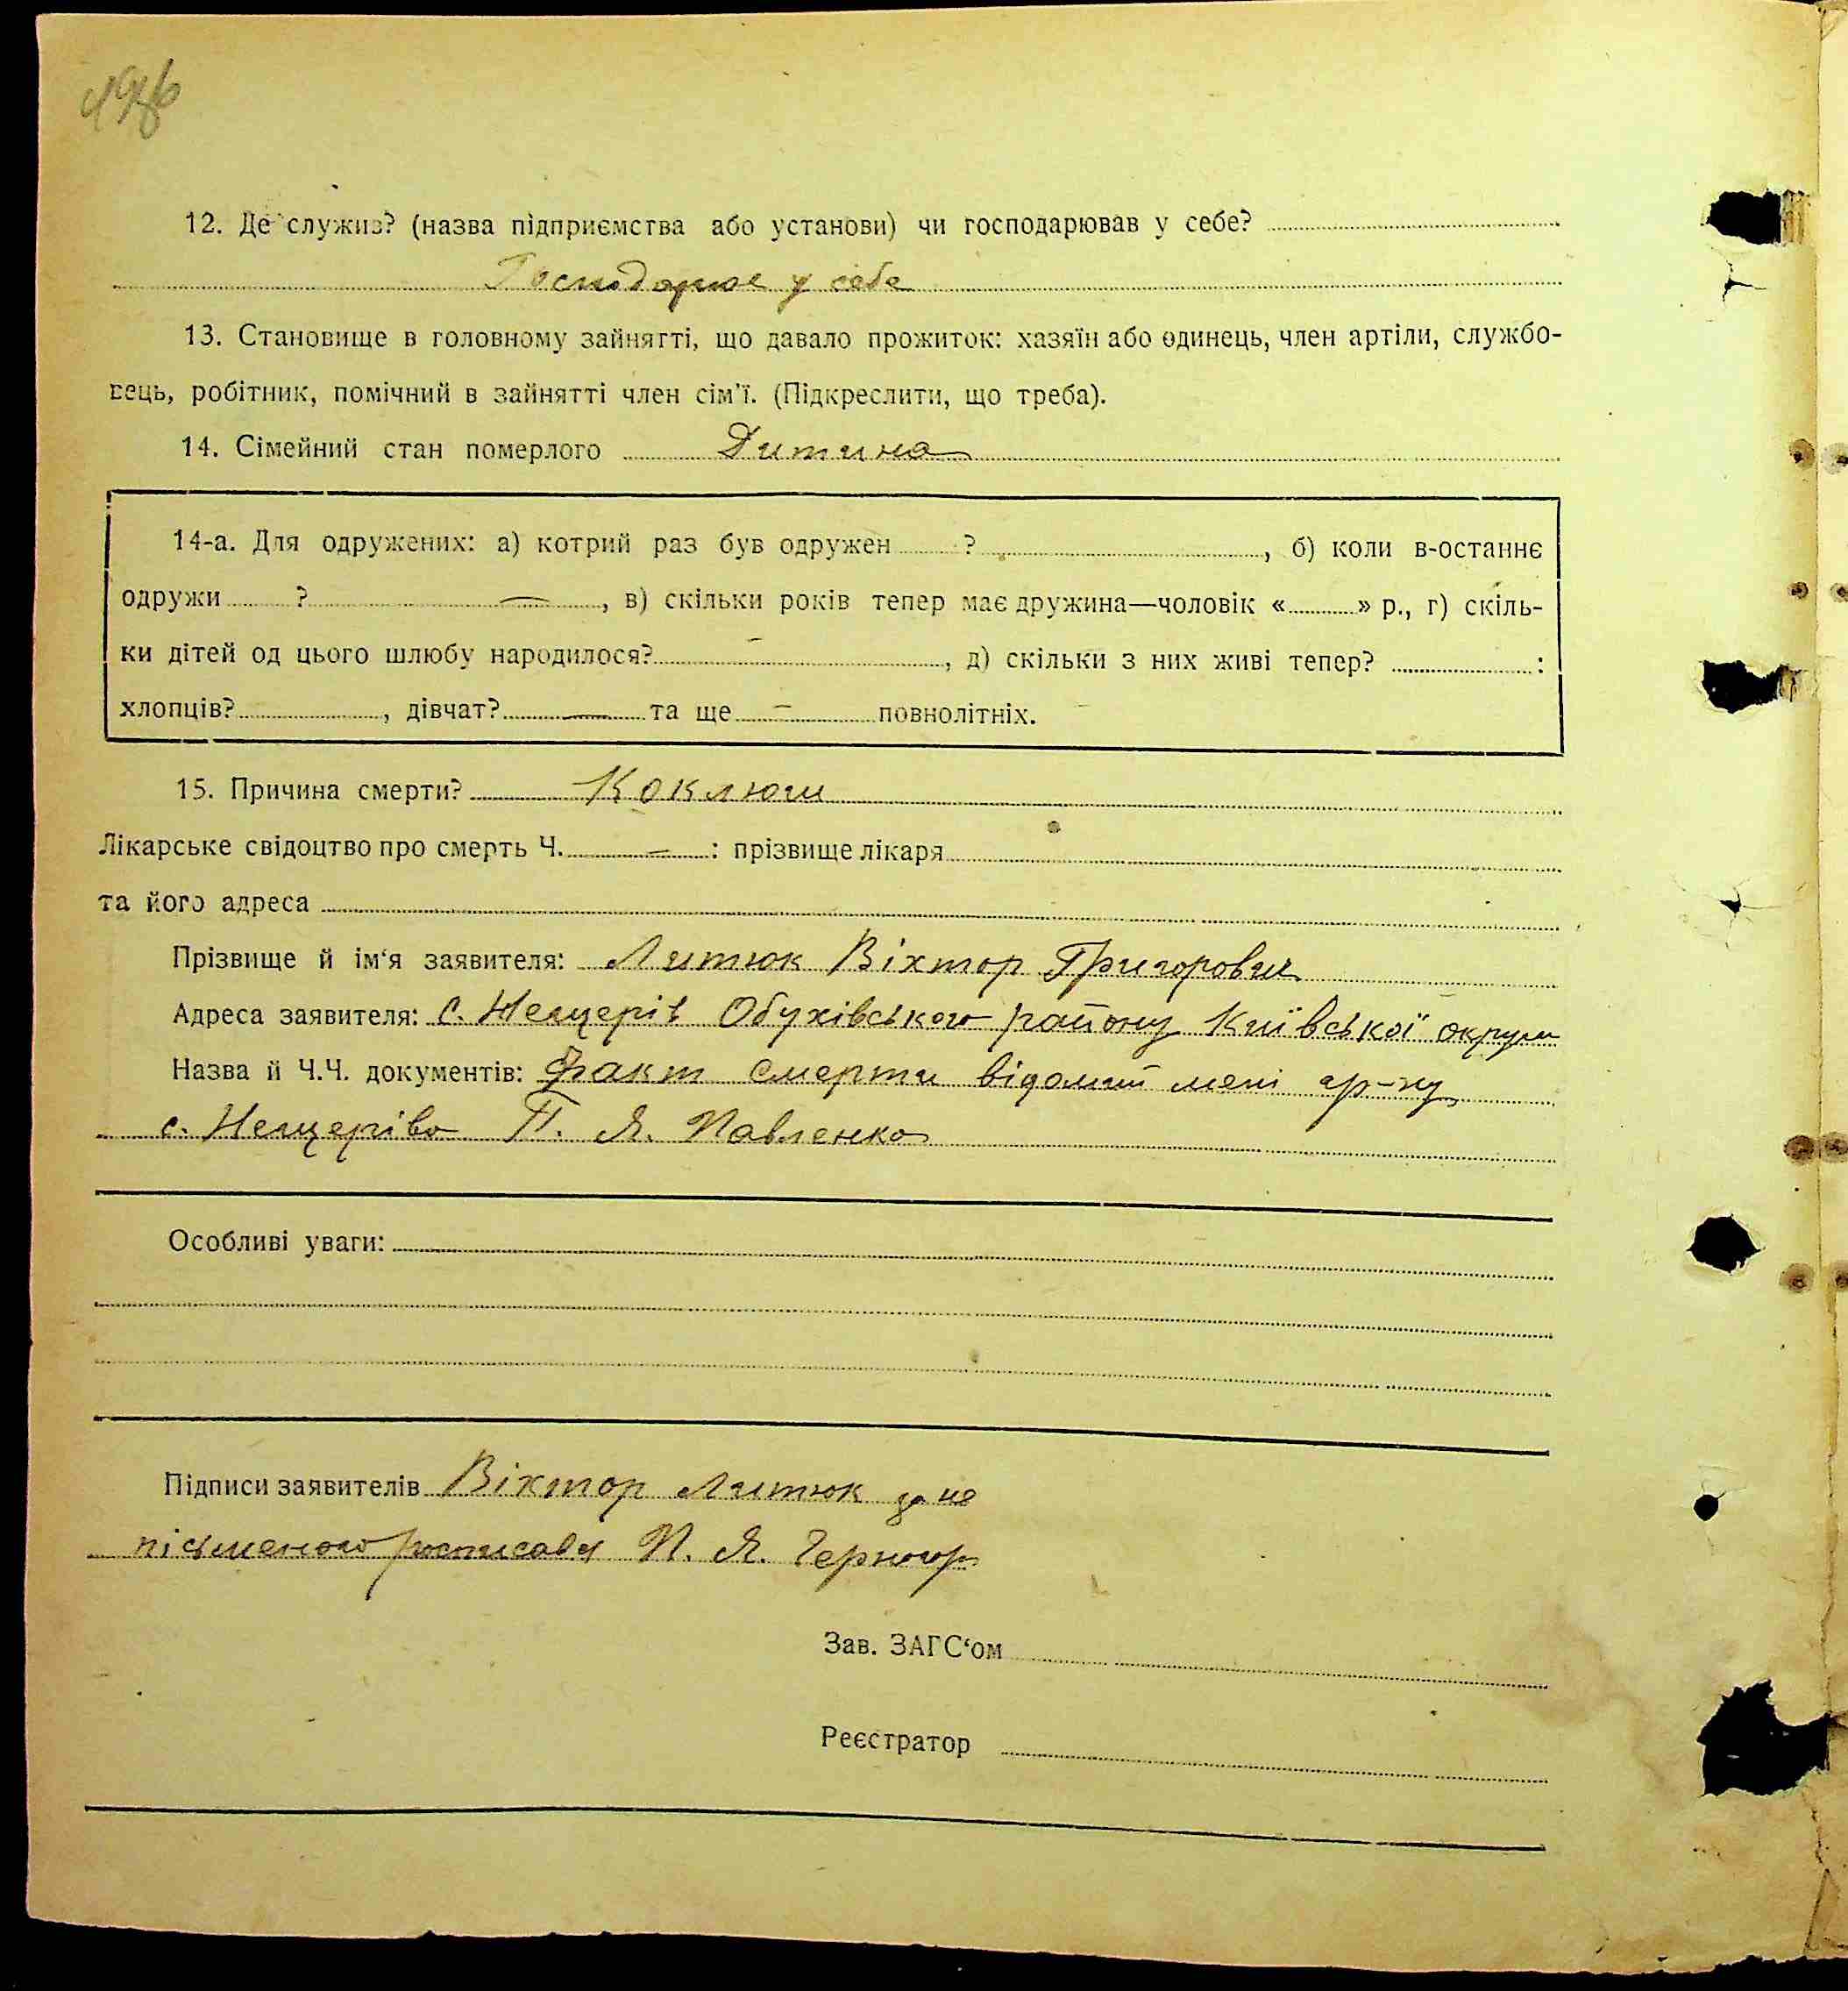 12. Де служив? (назва підприємства або установи) чи господарював у себе?
Господарює у себе
13. Становище в головному зайнятті, що давало прожиток: хазяїн або одинець, член артіли, службо-
вець, робітник, помічний в зайнятті член сім'ї. (Підкреслити, що треба).
14. Сімейний стан померлого Дитина
14-а. Для одружених: а) котрий раз був одружен ? , б) коли в-останнє
одружи ? — , в) скільки років тепер має дружина—чоловік « » р., г) скіль-
ки дітей од цього шлюбу народилося? — , д) скільки з них живі тепер? :
хлопців? , дівчат? — та ще — повнолітніх.
15. Причина смерти? Коклюш
Лікарське свідоцтво про смерть Ч. — : прізвище лікаря
та його адреса
Прізвище й ім'я заявителя: Литюк Віктор Григорович
Адреса заявителя: с. Нещерів Обухівського району Київської округи
Назва й Ч.Ч. документів: Факт смерти відомий мені гр-ну
с. Нещеріва П. Я. Павленко
Особливі уваги:
Підписи заявителів Віктор Литюк за не
письменого росписався П. Я.
Зав. ЗАГС'ом
Реєстратор